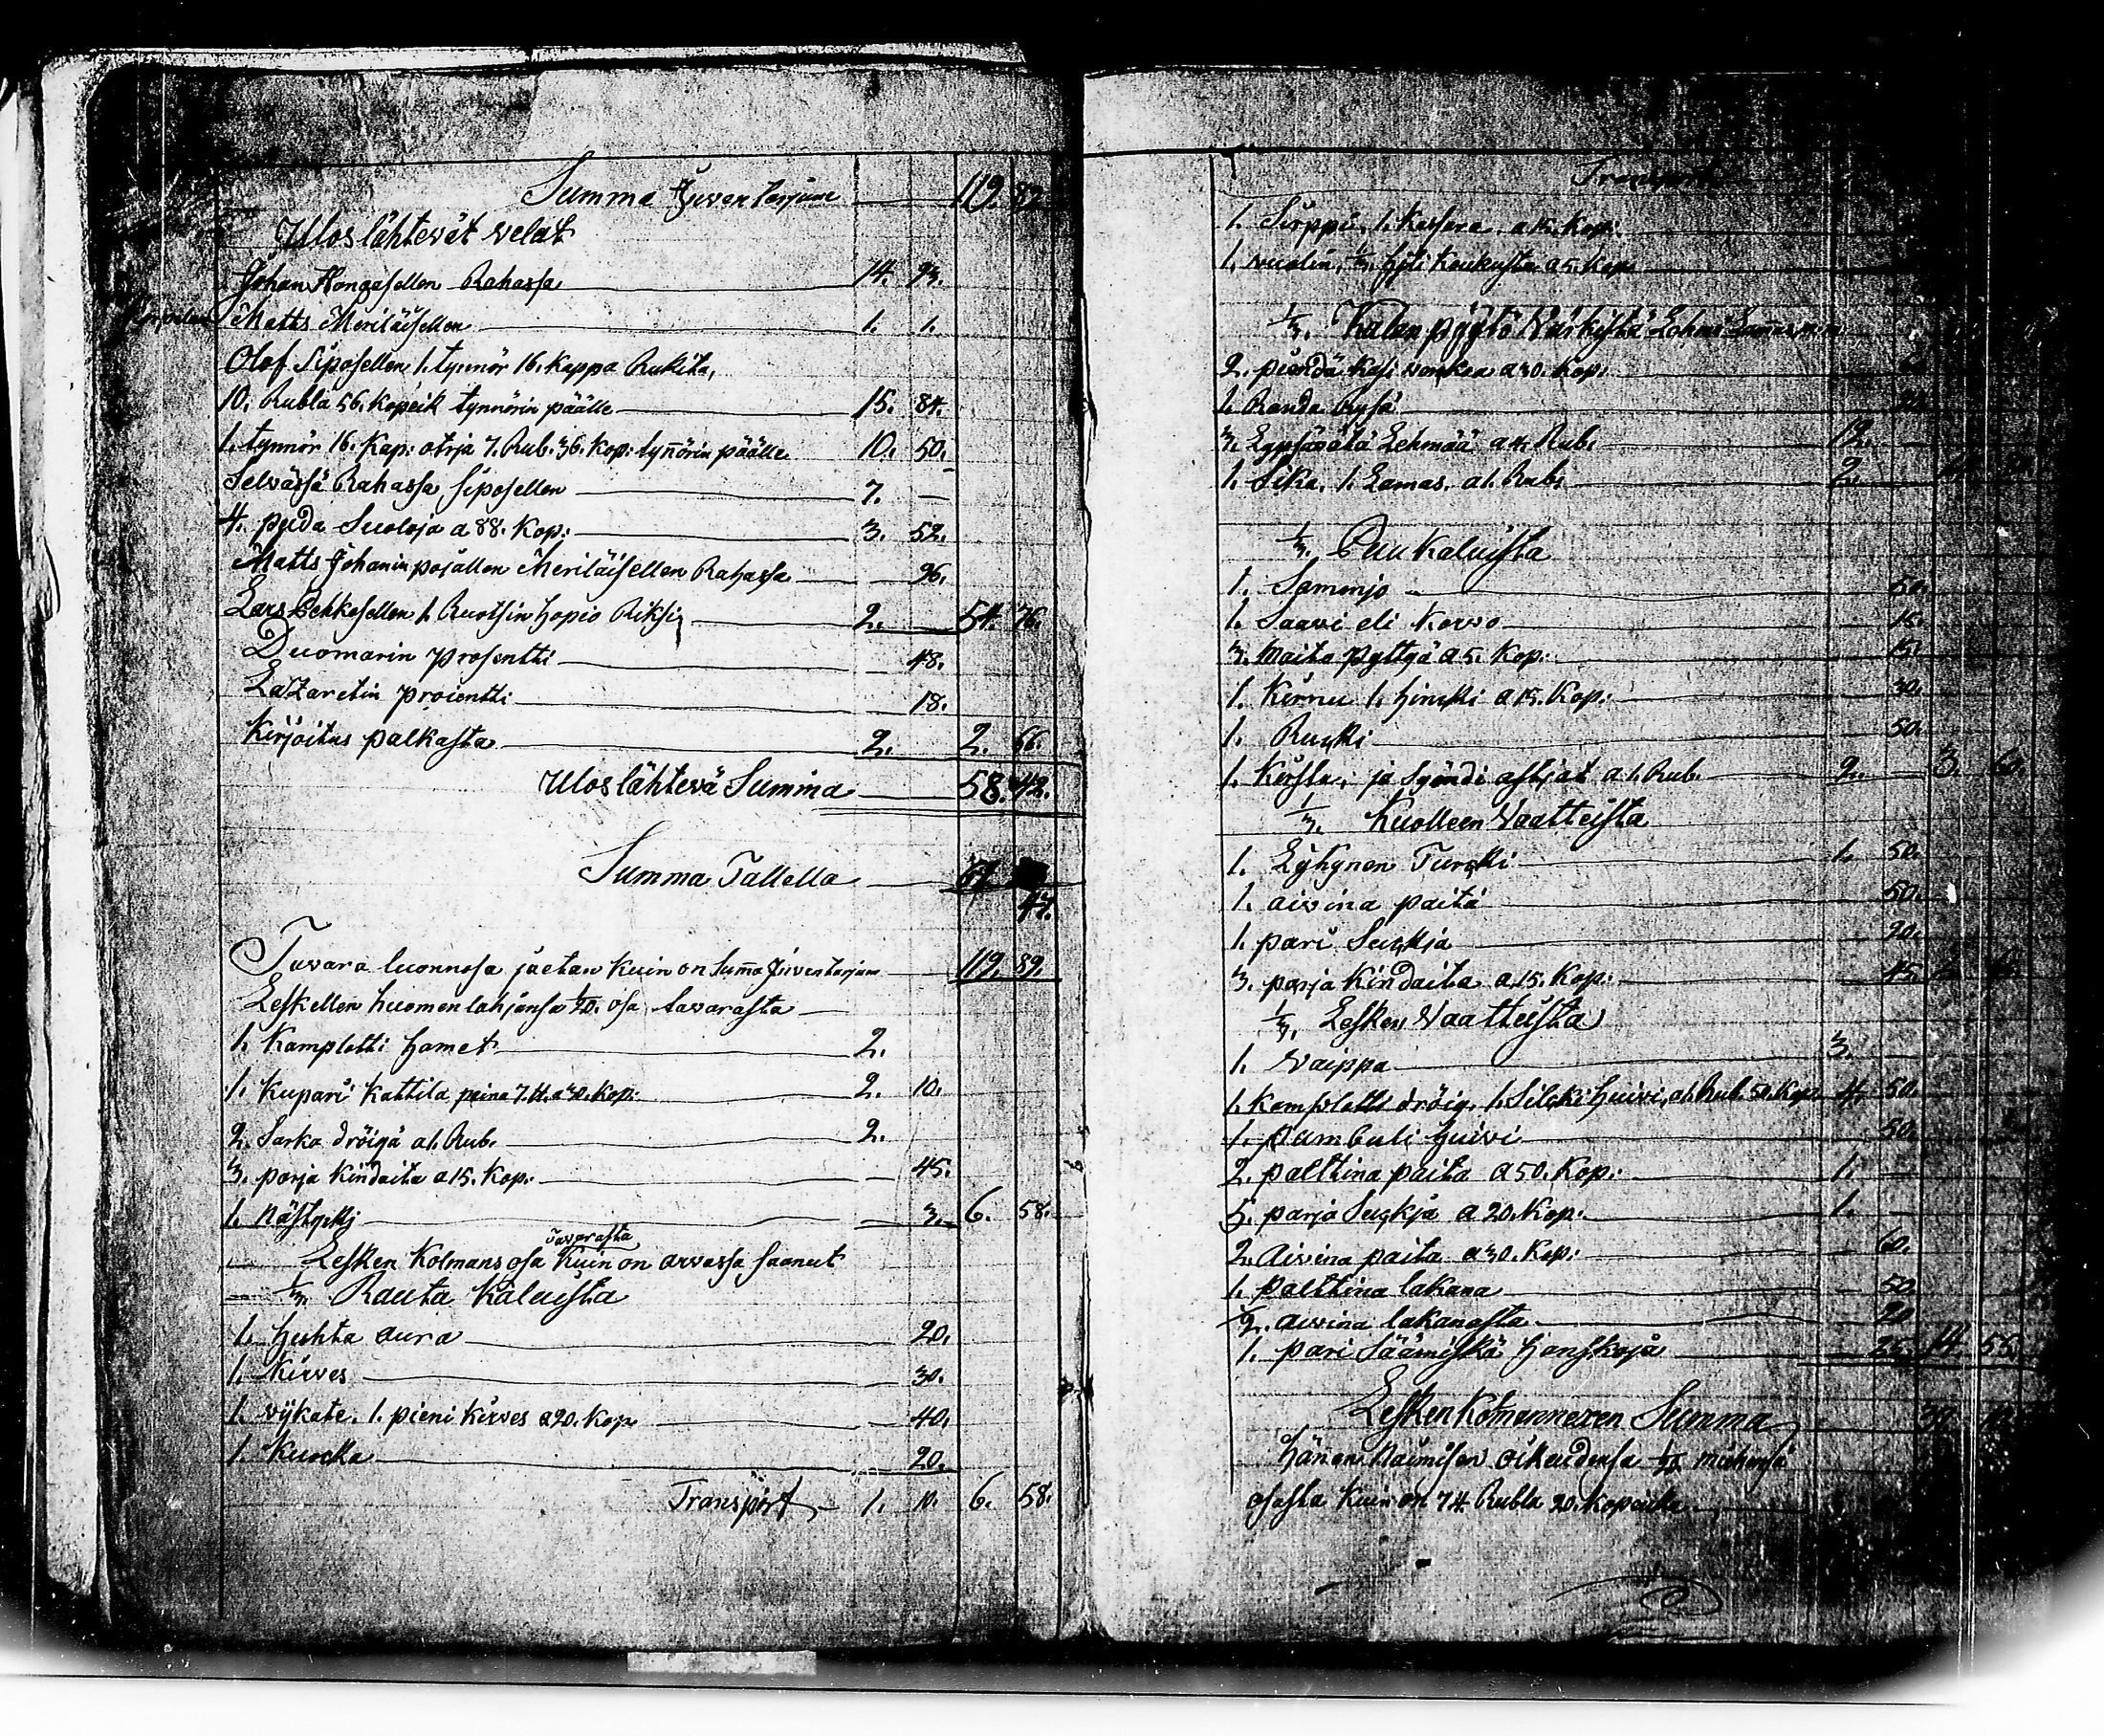 Summa Jnventarjum 119. 89.
Ulos lähtevät velat
Johan Hongasellen Rahassa 14. 93.
Matts Meriläisellen 1. 1.
Olof Siposellen 1. tynnör 16. kappa Rukita,
10. Rubla 56. kopeik tynnörin päälle 15. 84.
1. tynnör 16. Kap: otrja 7. Rub. 36. kop: tyn̄örin päälle 10. 50.
Selvässä Rahassa siposellen 7. —
4. puda Suoloja a 88. Kop: 3. 52.
Matts Johanin pojallen Meriläisellen Rahassa 96.
Lars 1. Ruotsin hopio Riksi 2. 54. 76.
Duomarin prosentti 48.
Lazaretin prosentti 18.
Kirjoitus palkasta 2. 2. 66.
Ulos lähtevä Summa 58. 42.
Summa Tallella 61.
47.
Tavara luonnosa jaetan kuin on Sum̄a Jnventarjum 119. 89.
Leskellen huomen lahjansa 1/20. osa tavarasta
1. Kamplotti hamet 2.
1. Kupari kattila paina 7. ℔. a 30. kop: 2. 10.
2. Sarka dröigä a 1. Rub. 2.
3. parja Kindaita a 15. Kop. 45.
1. Nästyckj 3. 6. 58.
tavarasta
Lesken Kolmans osa Kuin on arvassa saanut
1/3. Rauta Kaluista
1. huhta aura 20.
1. Kirves 30.
1. vijkate. 1. pieni kirves a 20. kop 40.
1. Kuocka 20.
Transport 1. 10. 6. 58.
Transport
1. Sirppi, 1. a 15. Kop:
1. vuolin, 1/2. a 5. kop
1/3. Kalan pyytö
2. a 30. Kop: 60
1. Randa Rysä
3. Lypsävätä Lehmää a 4. Rub. 12. —
1. Sika. 1. Lamas. a 1. Rub. 2.
1/3. Puu Kaluista
1. Sammjo 50.
1. Saavi eli Korvo 15.
3. Maito pyttyä a 5. Kop: 15.
1. Kirnu 1. hinckki a 15. Kop: 30.
1. Ruckki 50.
1. Kirstu, ja Syöndi astjat a 1. Rub. 2. — 3. 60.
1/3. Kuolleen Vaatteista
1. Lyhynen Turcki 1. 50.
1. aivina paita 50.
1. pari Suckja 20.
3. parja Kindaita a 15. Kop: 45.
1/3. Lesken Vaatteista
1. Vaippa 3.
1. Kamplotti dröig, 1. Silcki huivi, a 1. Rub. 50. Kop: 4. 50.
1. pumbuli huivi 50.
2. palttina paita a 50. Kop: 1. —
5. parja Suckja a 20. Kop: 1. —
2. Aivina paita a 30. Kop: 60.
1. palttina lakana 50.
1/2. aivina lakanasta 20
1. pari Säämiskä hanskoja 25. 14. 55.
Lesken Kolmanneren Summa 39.
hänen Naimisen oikeudensa miehensä
osasta Kuin on 74 Rubla 20. kopeicka